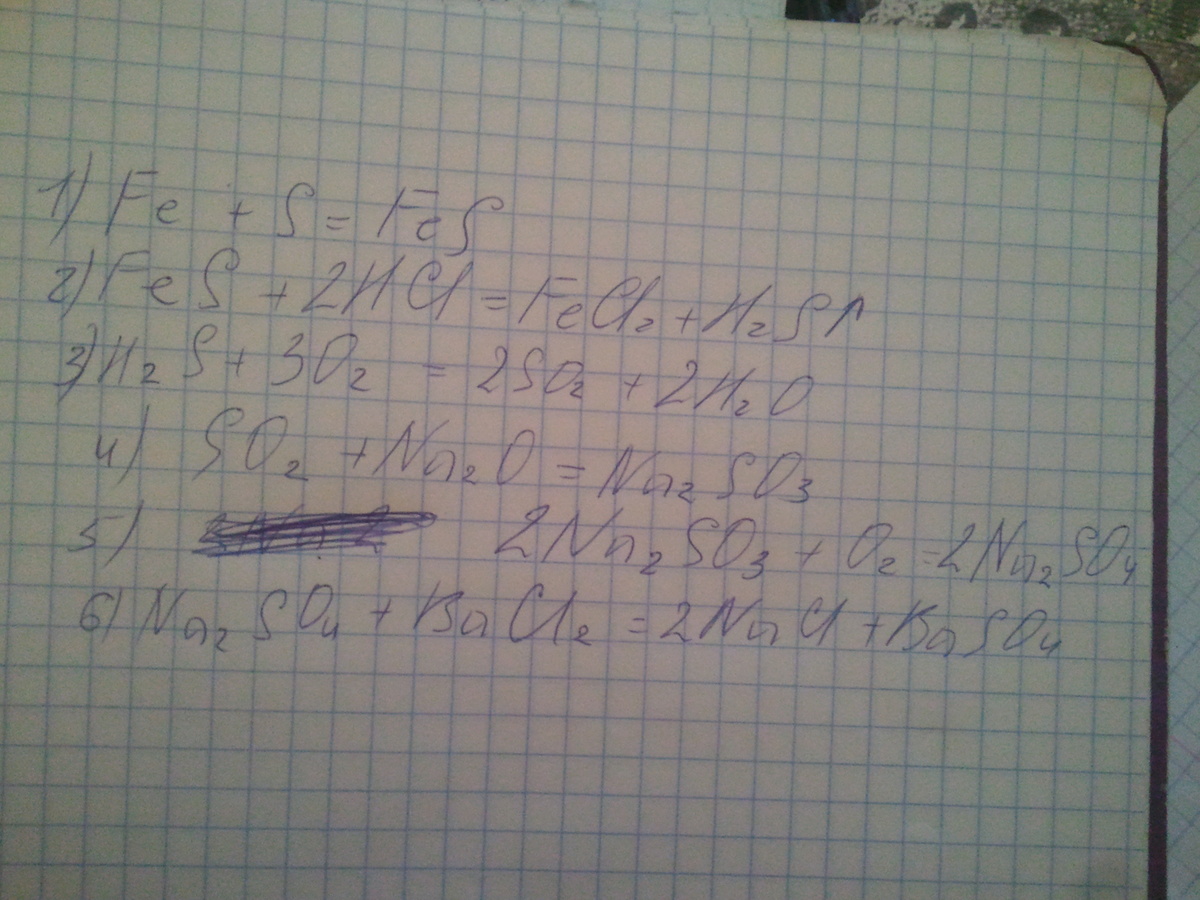 1) Fe + S = FeS
2) FeS + 2HCl = FeCl₂ + H₂S↑
3) H₂S + 3O₂ = 2SO₂ + 2H₂O
4) SO₂ + Na₂O = Na₂SO₃
5) 2Na₂SO₃ + O₂ = 2Na₂SO₄
6) Na₂SO₄ + BaCl₂ = 2NaCl + BaSO₄